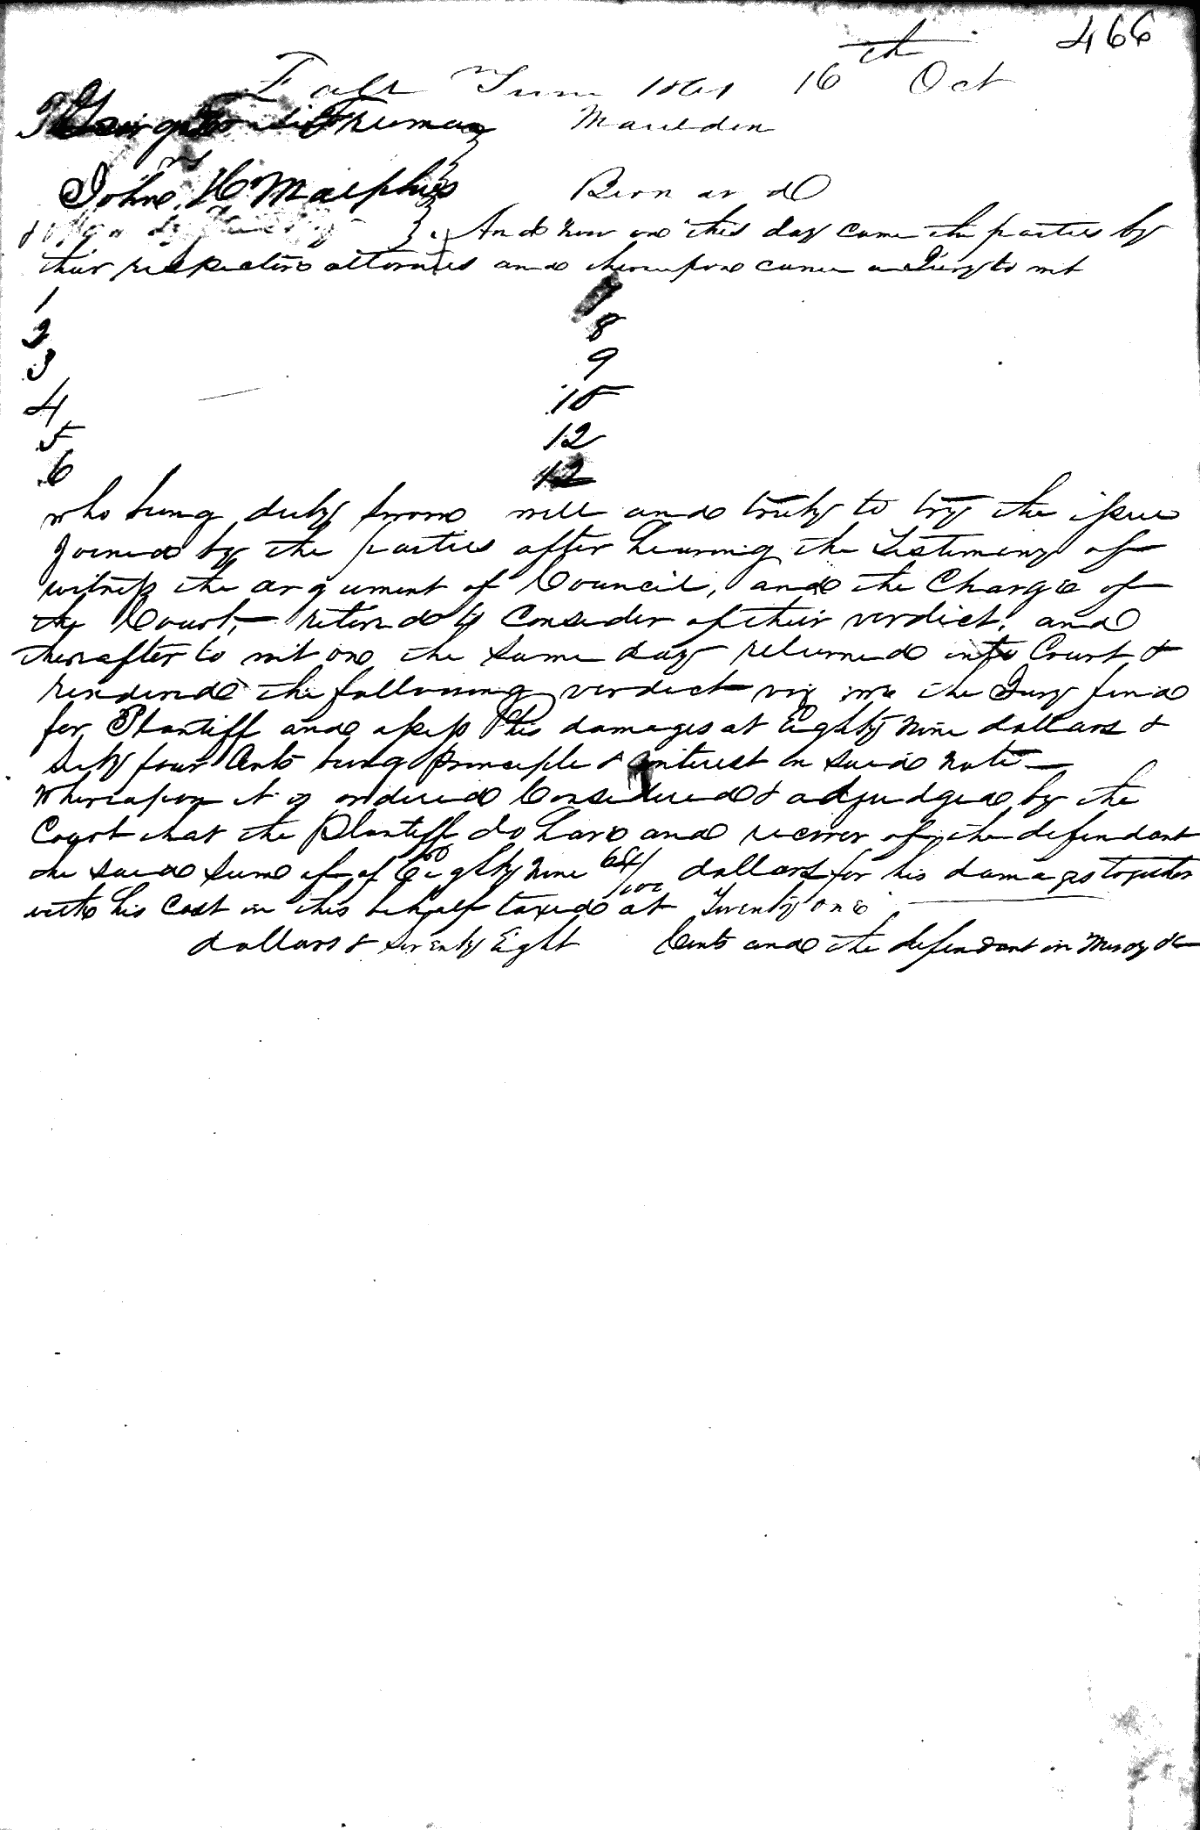 466
Fall Term 1861 16th Oct
George Truman Maulden
vs
John H Maephies Bernard
And now on this day came the parties by
their respective attornies and thereupon came a Jury to wit
1 7
2 8
3 9
4 10
5 12
6 12
who being duly sworn well and truly to try the issue
joined by the parties after hearing the Testimony of
witness the argument of Council, and the Charge of
the Court, retired to Consider of their verdict, and
thereafter to wit on the same day returned into Court &
rendered the following verdict viz we the Jury find
for Plantiff and assess his damages at Eighty Nine dollars &
sixty four Cents being principle & interest on said note
Whereupon it is ordered Considered & adjudged by the
Court that the Plantiff do have and recover of the defendant
the said sum of of Eighty Nine 64/100 dollars for his damages together
with his Cost in this behalf taxed at Twenty one
dollars & Seventy Eight Cents and the defendant in Mercy &c